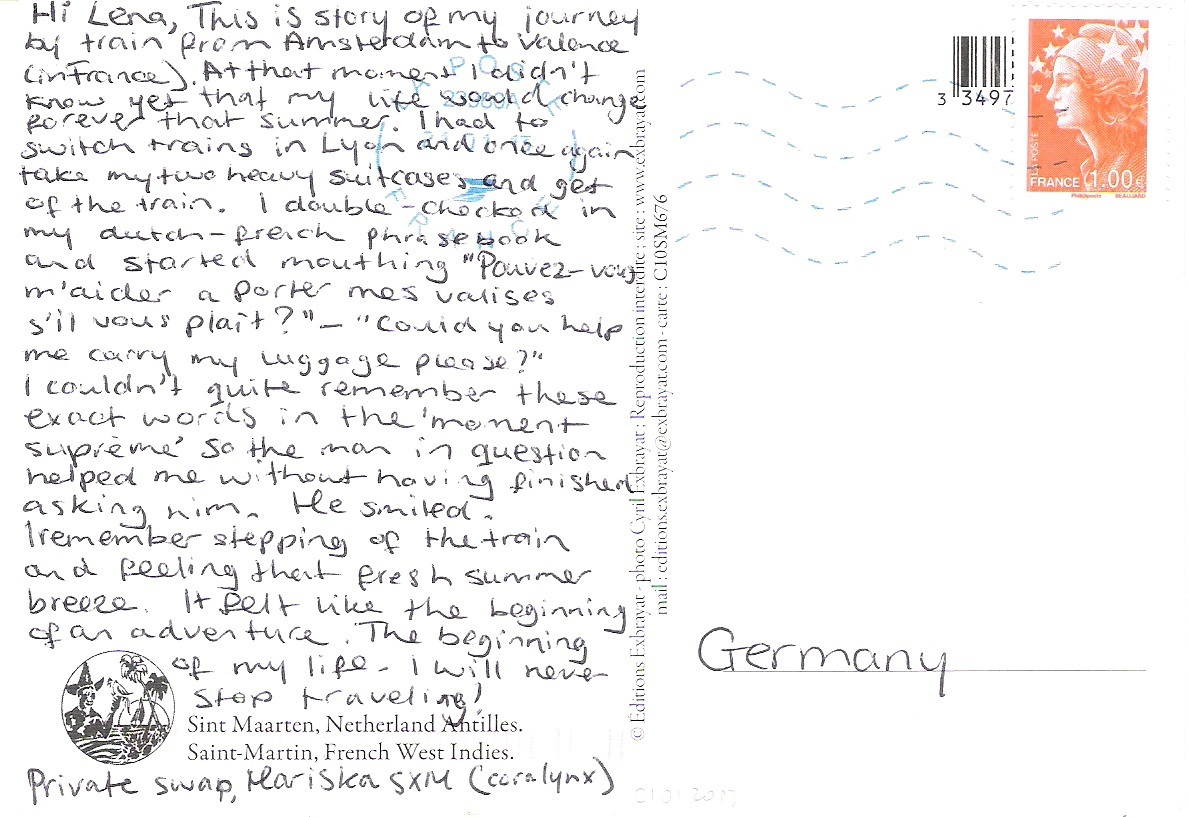 Hi Lena, This is story of my journey
by train from Amsterdam to Valence
(in France). At that moment I didn't
know yet that my life would change
forever that summer. I had to
switch trains in Lyon and once again
take my two heavy suitcases and get
of the train. I double-checked in
my dutch-french phrasebook
and started mouthing "Pouvez-vous
m'aider a porter mes valises
s'il vous plaît?" - "Could you help
me carry my luggage please?"
I couldn't quite remember these
exact words in the 'moment
suprème' so the man in question
helped me without having finished
asking him. He smiled.
I remember stepping of the train
and feeling that fresh summer
breeze. It felt like the beginning
of an adventure. The beginning
of my life. I will never
stop traveling!
Sint Maarten, Netherland Antilles.
Saint-Martin, French West Indies.
Private swap, Mariska SXM (coralynx)
© Editions Exbrayat - photo Cyril Exbrayat ; Reproduction interdite ; site : www.exbrayat.com
mail : editions.exbrayat@exbrayat.com - carte : C10SM676
3 3497
LA POSTE
FRANCE 1.00€
Phil@poste BEAUJARD
Germany